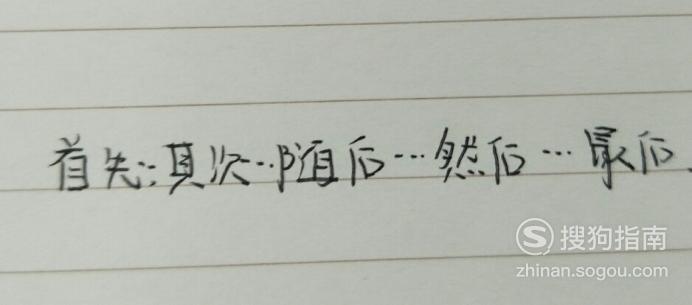 首先…其次…随后…然后…最后
搜狗指南
zhinan.sogou.com